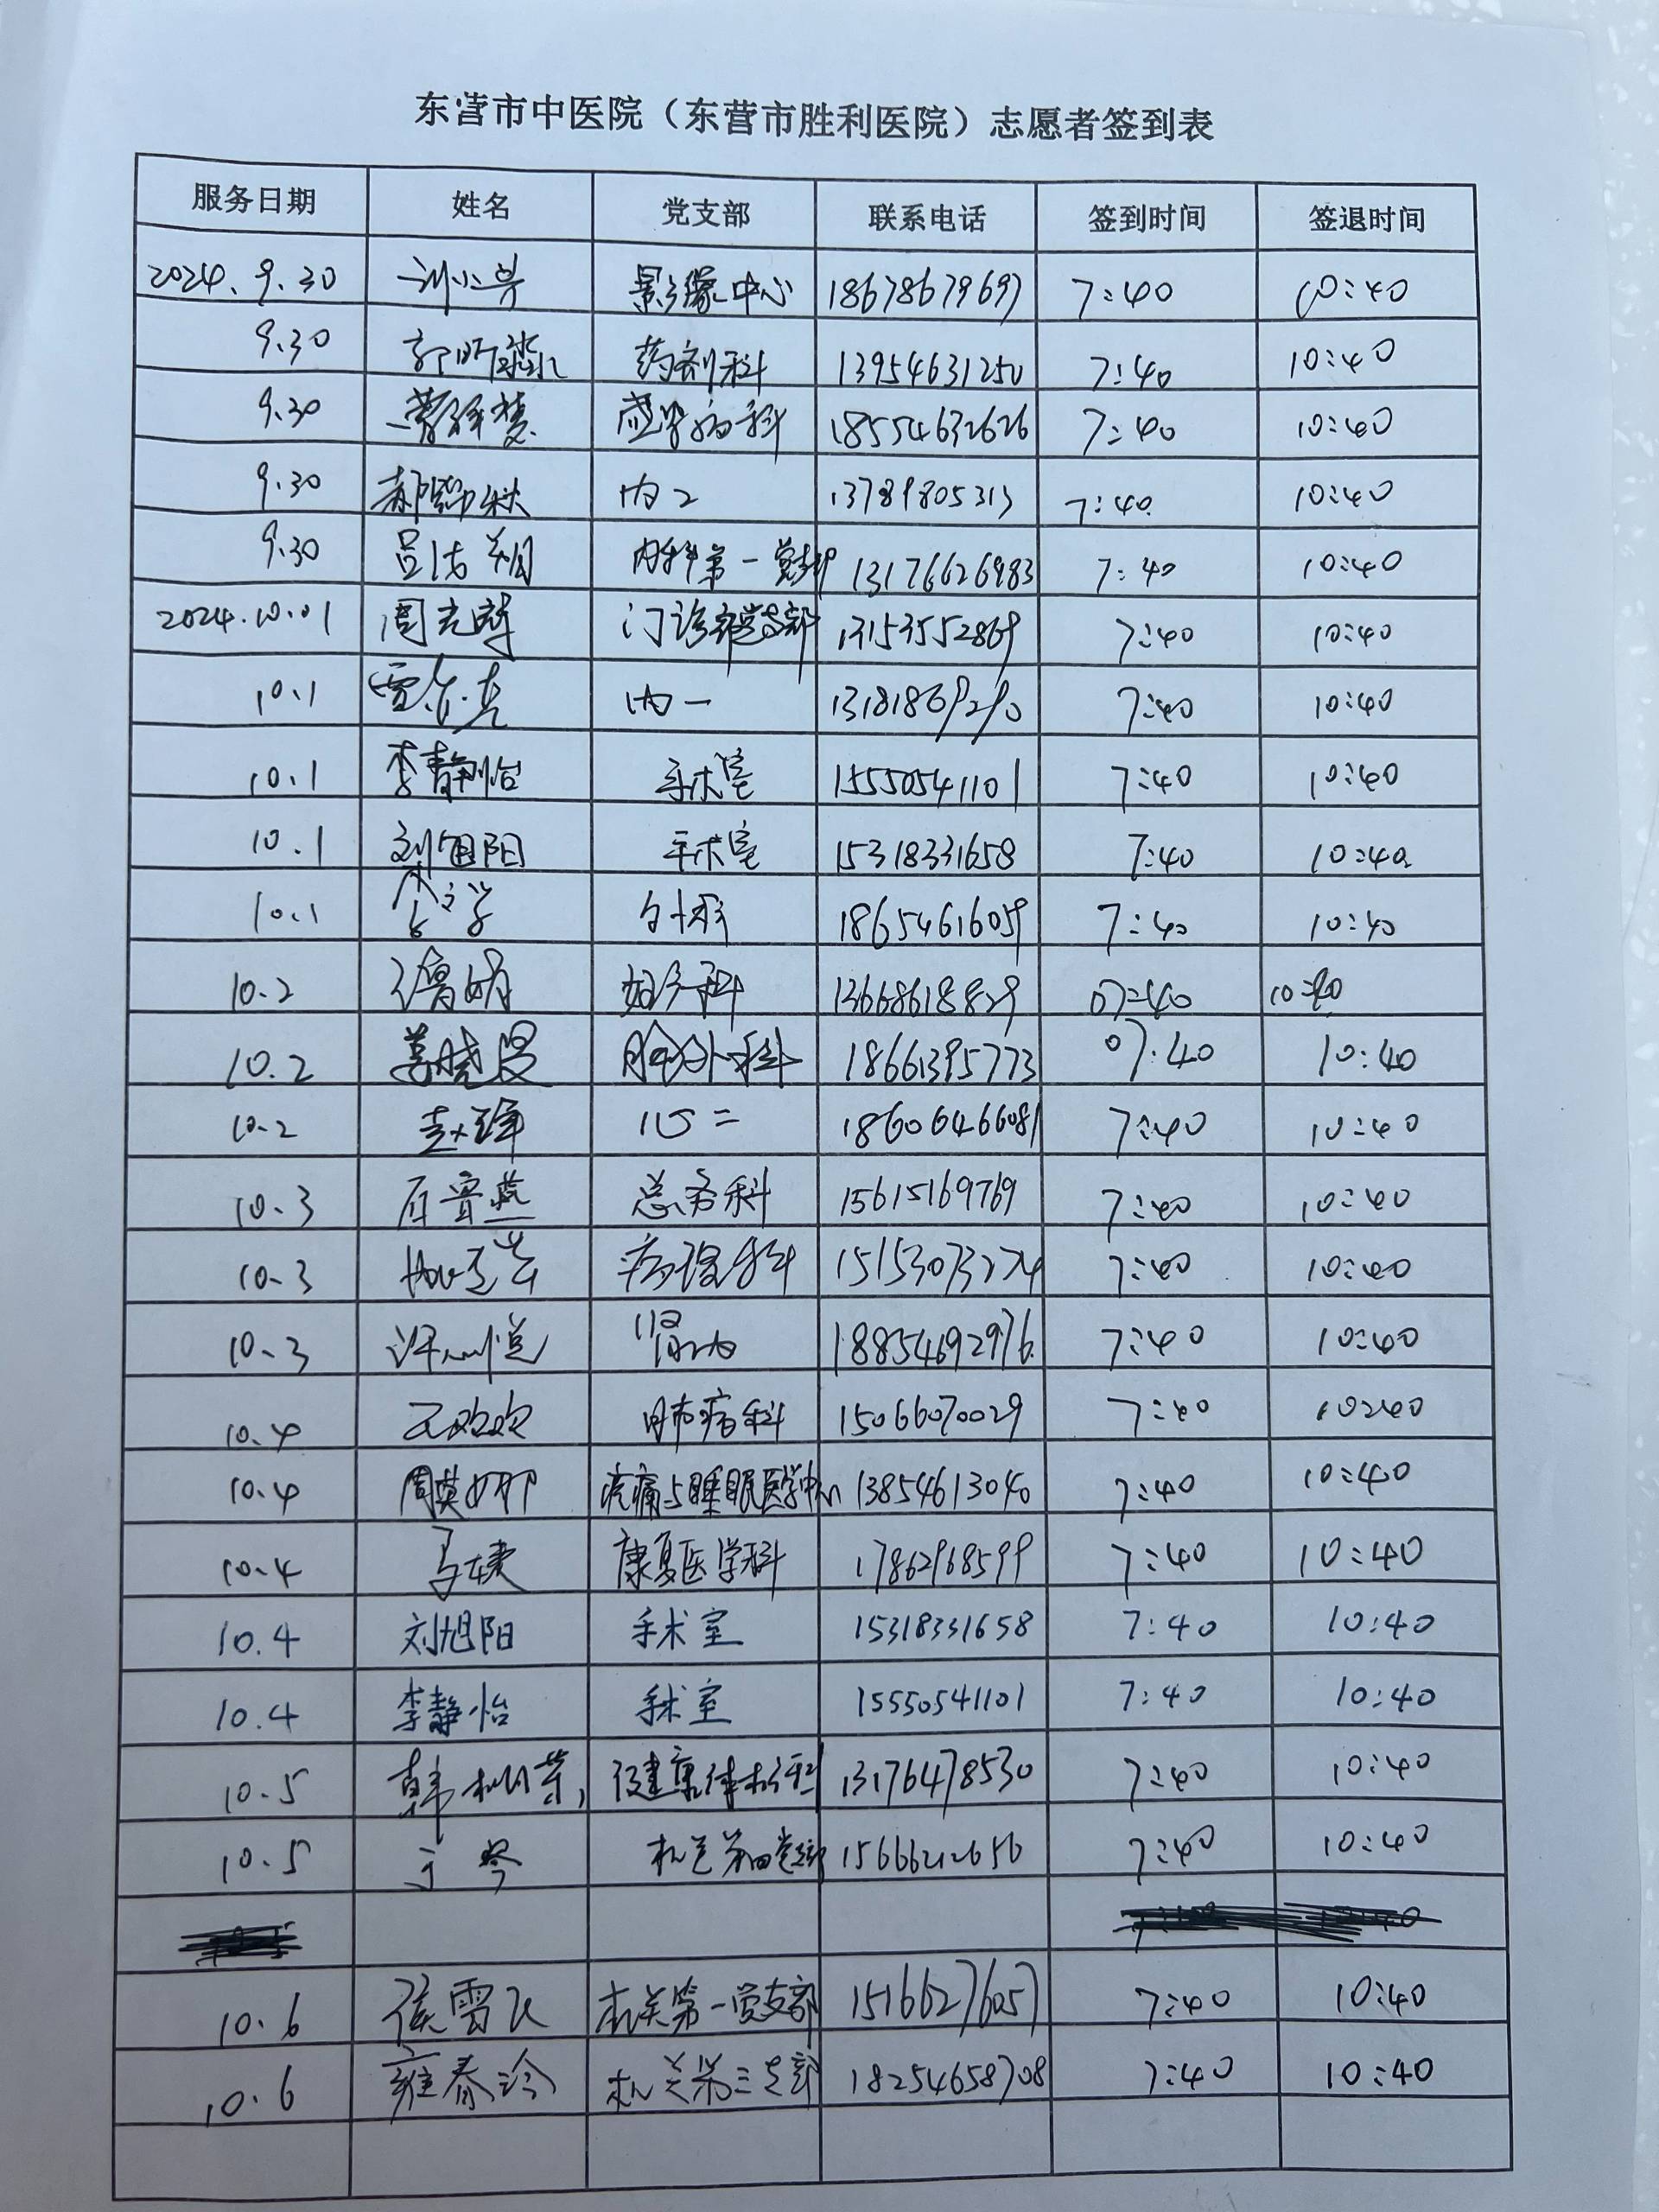 东营市中医院（东营市胜利医院）志愿者签到表
服务日期 姓名 党支部 联系电话 签到时间 签退时间
2024.9.30 影像中心 18678679697 7:40 10:40
9.30 药剂科 13954631250 7:40 10:40
9.30 感染病科 18554632626 7:40 10:40
9.30 内2 13789805313 7:40 10:40
9.30 吕洁翔 内科第一党支部 13176626983 7:40 10:40
2024.10.01 门诊部党支部 13153552869 7:40 10:40
10.1 内一 13181869290 7:40 10:40
10.1 李静怡 手术室 15550541101 7:40 10:40
10.1 刘旭阳 手术室 15318331658 7:40 10:40
10.1 外科 18654616059 7:40 10:40
10.2 妇产科 13668618829 07:40 10:40
10.2 姜晓旻 胸外科 18661395773 07:40 10:40
10.2 赵锋 心二 18606466081 7:40 10:40
10.3 总务科 15615169769 7:40 10:40
10.3 病理科 15153073274 7:40 10:40
10.3 肾内 18854692976 7:40 10:40
10.4 王欢欢 肺病科 15066070029 7:40 10:40
10.4 周英娜 疼痛与睡眠医学中心 13854613040 7:40 10:40
10.4 康复医学科 17862968599 7:40 10:40
10.4 刘旭阳 手术室 15318331658 7:40 10:40
10.4 李静怡 手术室 15550541101 7:40 10:40
10.5 健康体检科 13176478530 7:40 10:40
10.5 于琴 机关第四党支部 15666212656 7:40 10:40
10.6 侯雪飞 机关第一党支部 15166276057 7:40 10:40
10.6 雍春玲 机关第三支部 18254658708 7:40 10:40